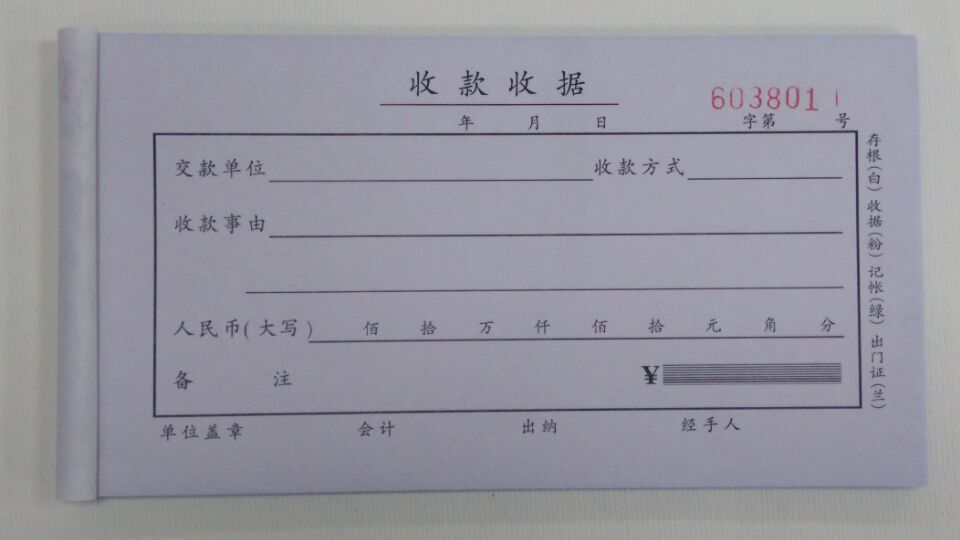 收款收据
6038011
年 月 日 字第 号
交款单位 收款方式
收款事由
人民币(大写) 佰 拾 万 仟 佰 拾 元 角 分
备 注 ¥
单位盖章 会计 出纳 经手人
存根(白) 收据(粉) 记帐(绿) 出门证(兰)